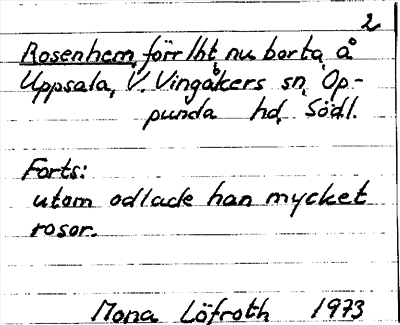 2
Rosenhem, förr lht, nu borta, å
Uppsala, V. Vingåkers sn, Op-
punda hd, Södl.
Forts:
utom odlade han mycket
rosor.
Mona Löfroth 1973